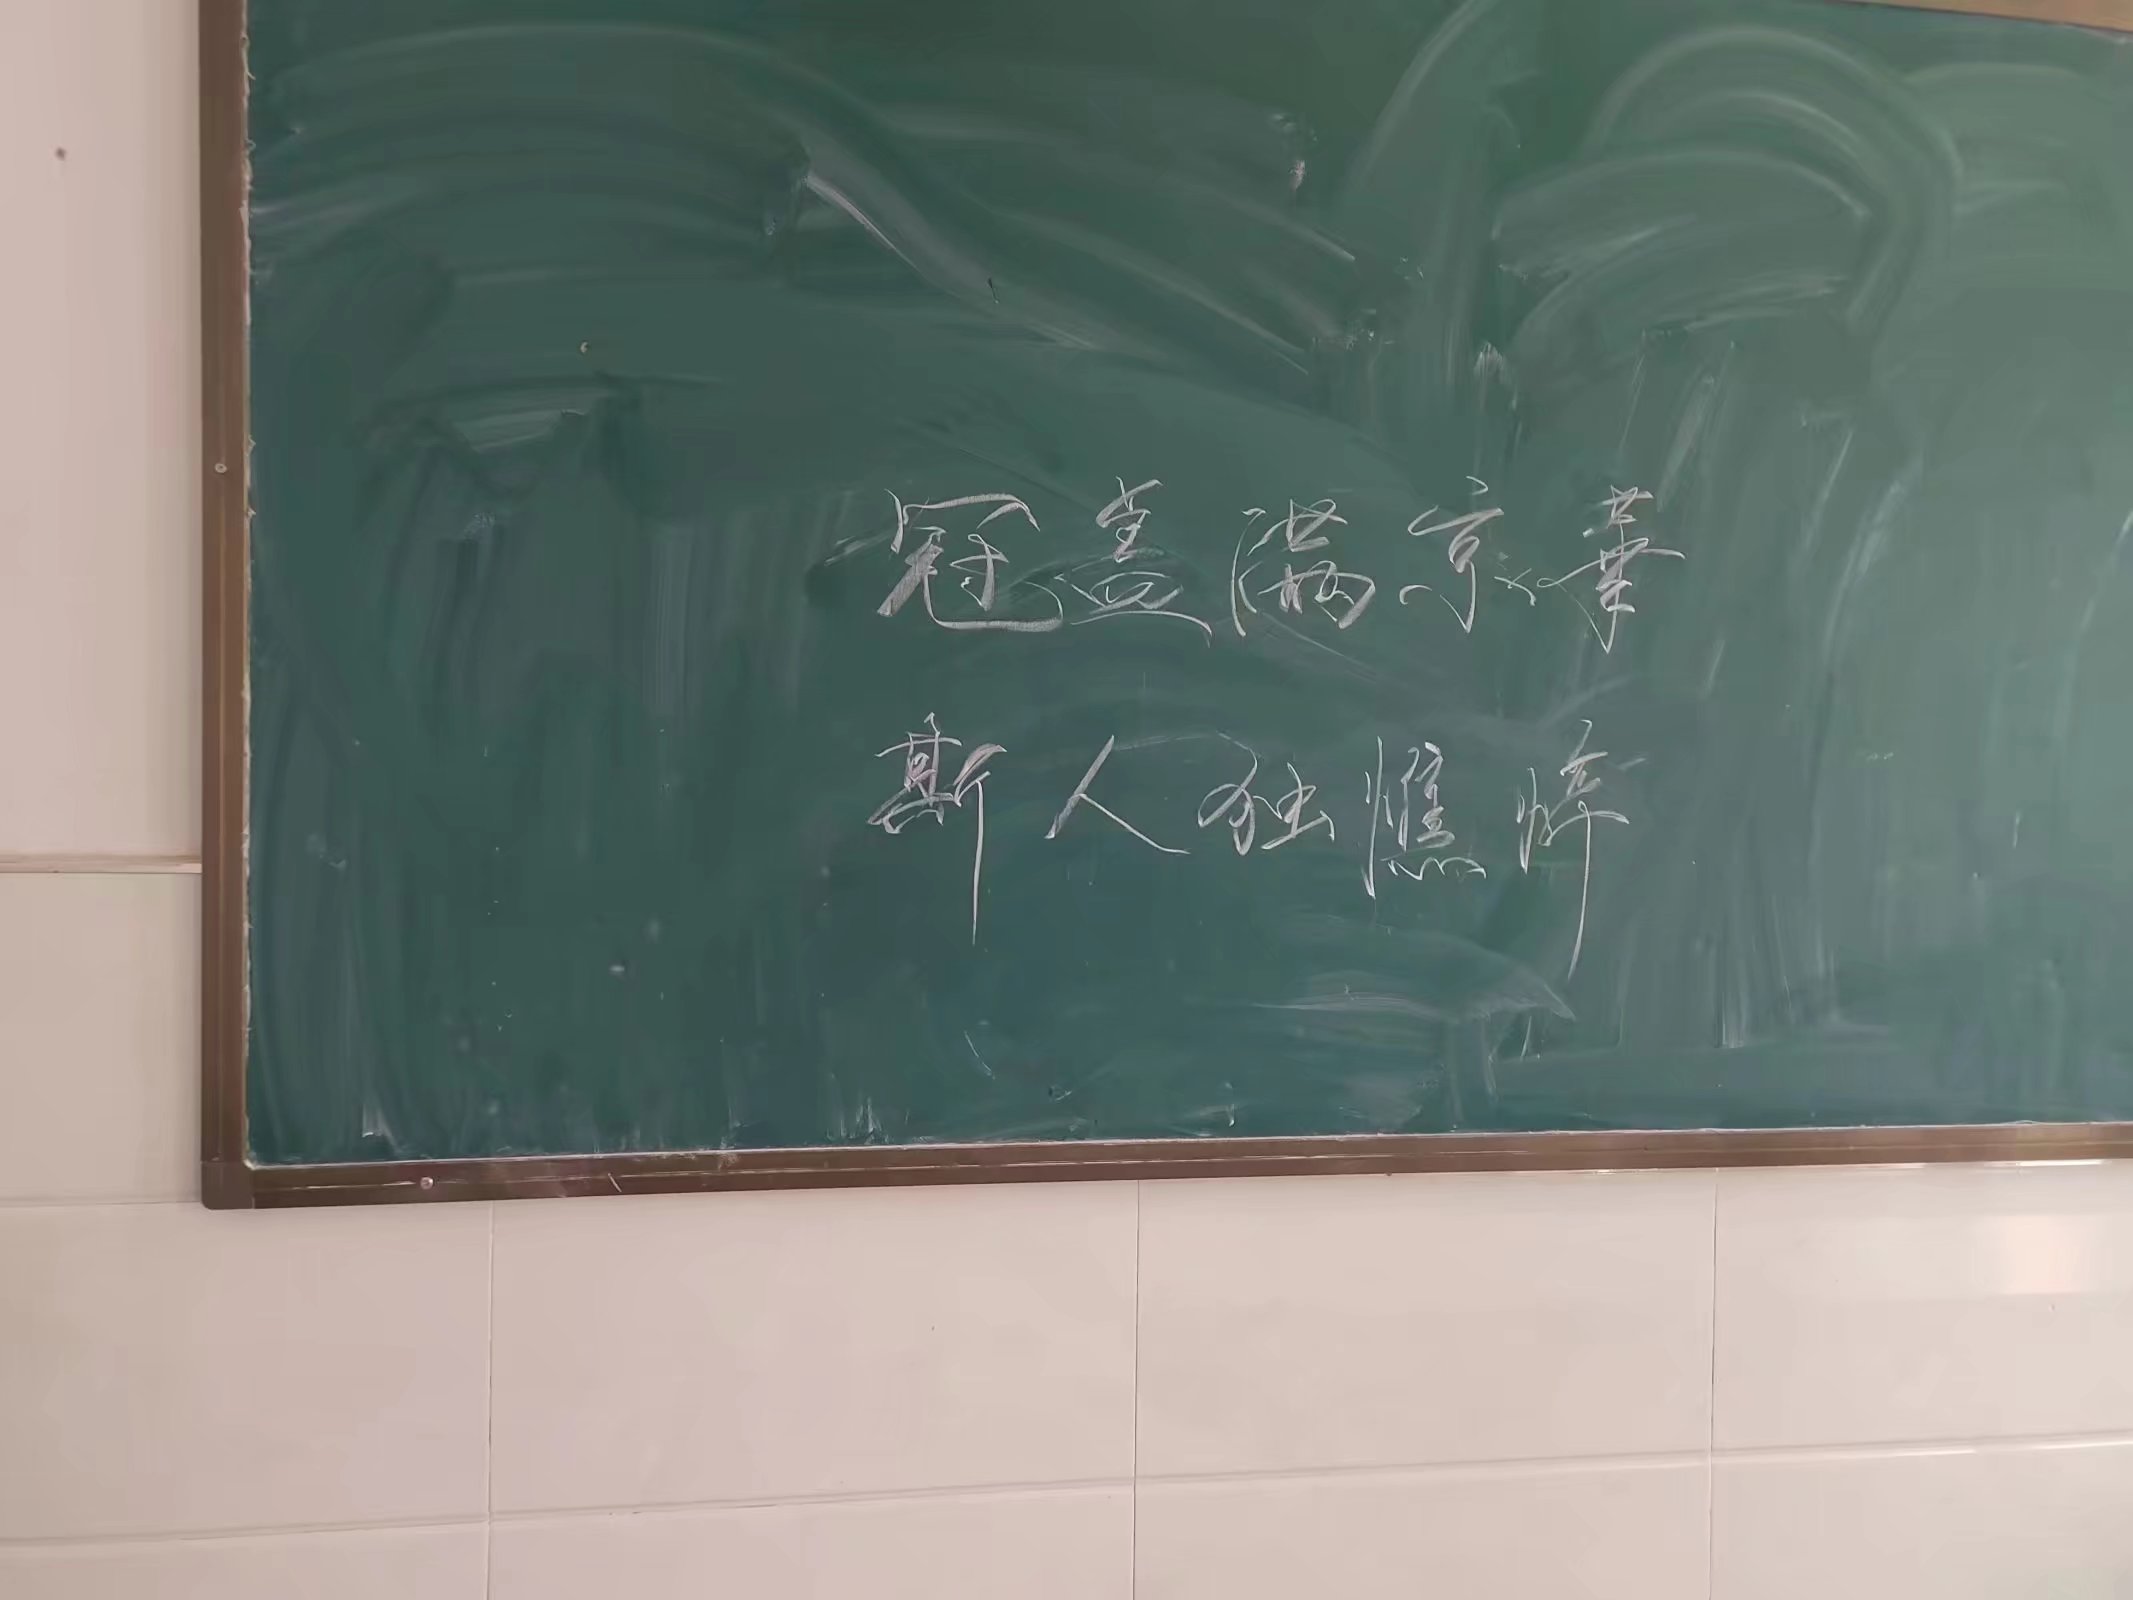 冠盖满京華
斯人独憔悴